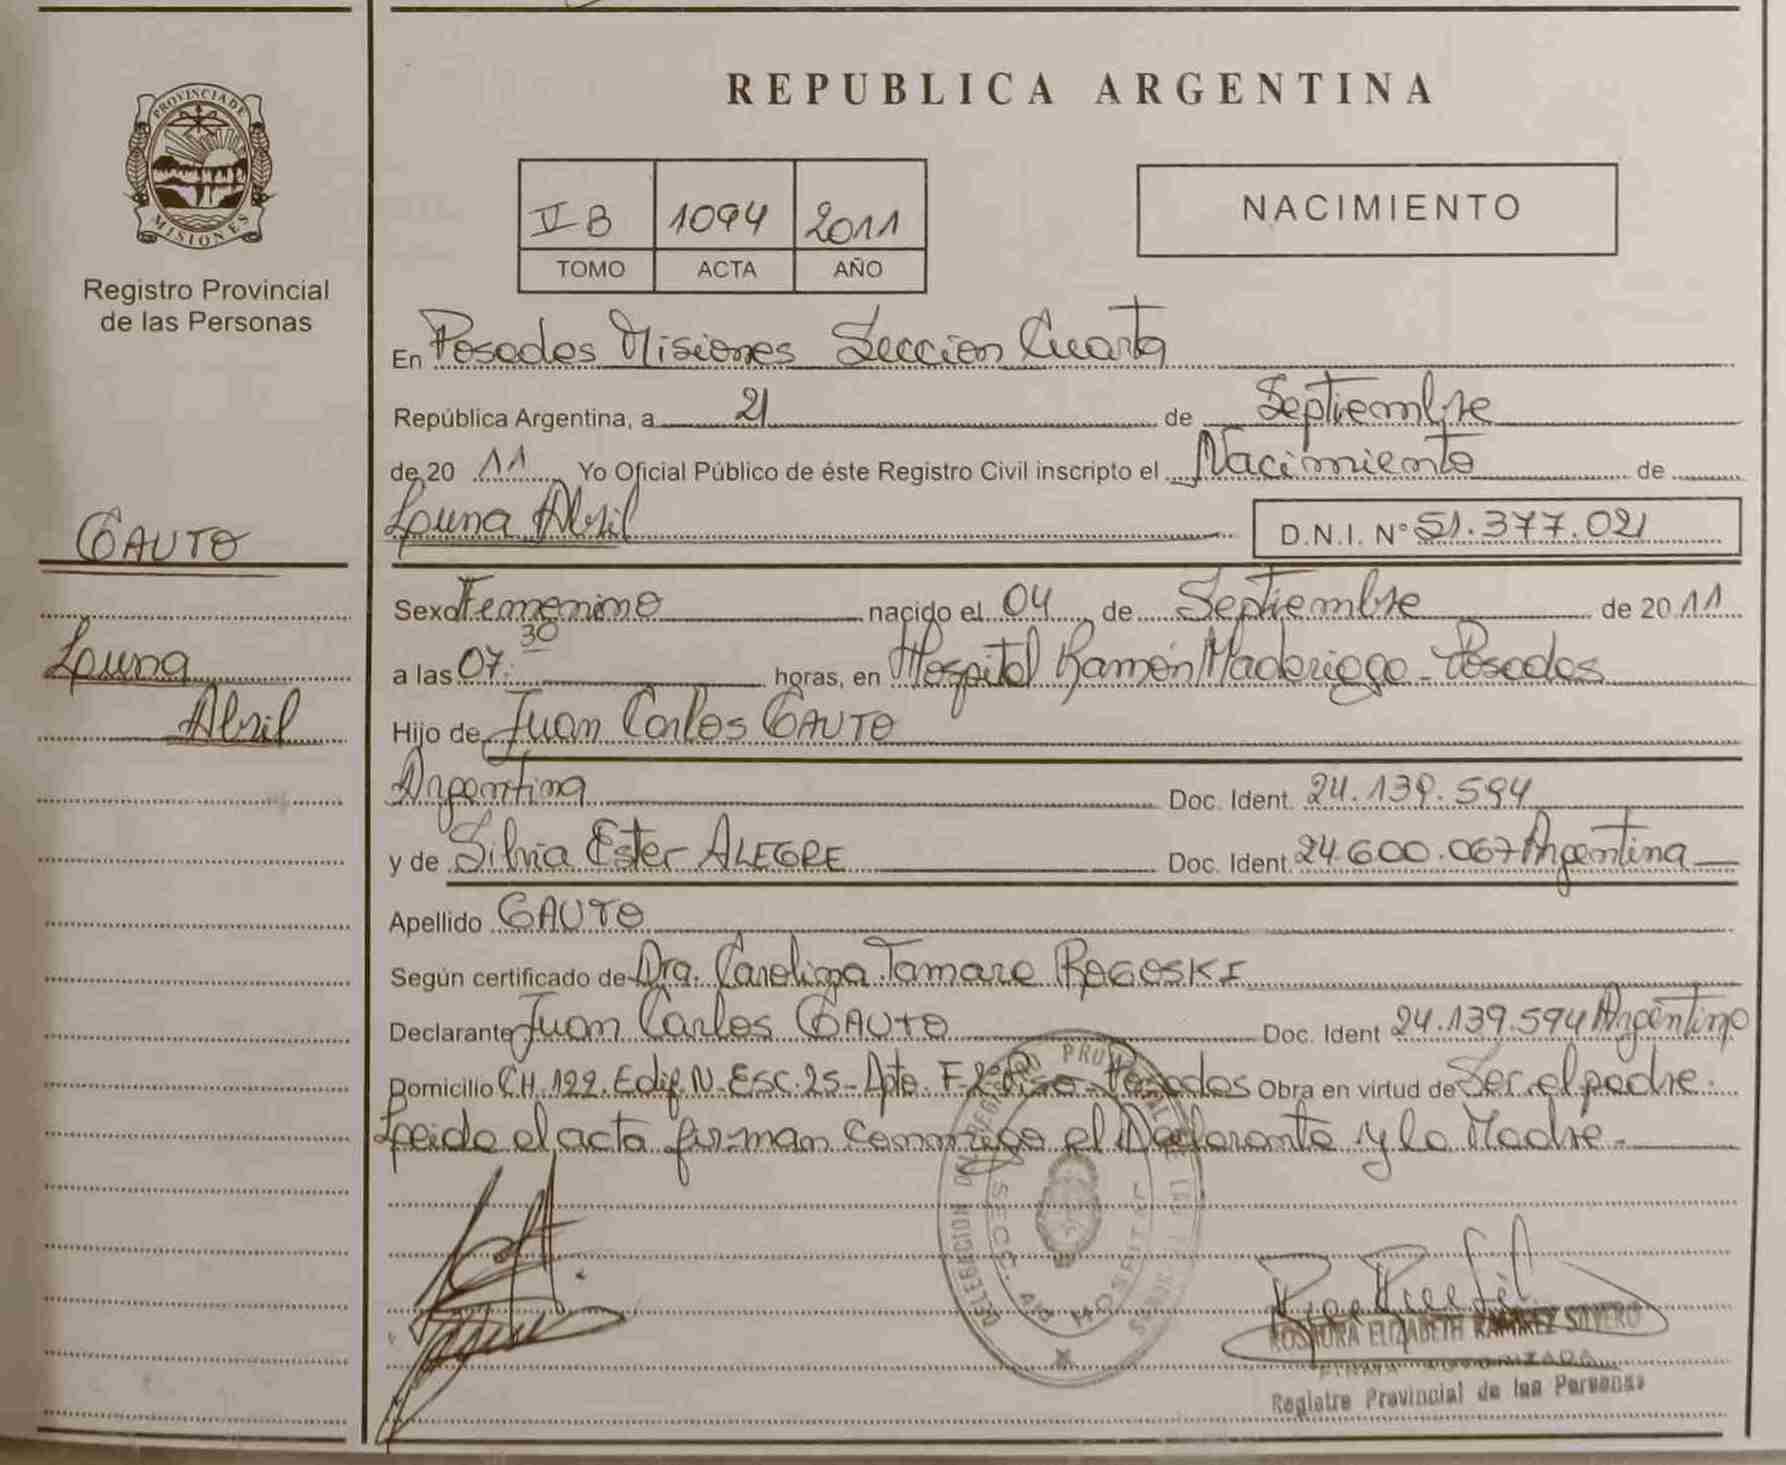 REPUBLICA ARGENTINA
PROVINCIA DE
MISIONES
Registro Provincial
de las Personas
V B 1094 2011
TOMO ACTA AÑO
NACIMIENTO
En Posadas Misiones Seccion Cuarta
República Argentina, a 21 de Septiembre
de 20 11 Yo Oficial Público de éste Registro Civil inscripto el Nacimiento de
Luna Abril D.N.I. N° 51.377.021
GAUTO
Luna
Abril
Sexo Femenino nacido el 04 de Septiembre de 20 11
a las 07:30 horas, en Hospital Ramón Madariaga - Posadas
Hijo de Juan Carlos GAUTO
Argentina Doc. Ident. 24.139.594
y de Silvia Ester ALEGRE Doc. Ident. 24.600.067 Argentina
Apellido GAUTO
Según certificado de Dra. Carolina Tamara ROGOSKI
Declarante Juan Carlos GAUTO Doc. Ident 24.139.594 Argentino
Domicilio CH.122. Edif. N. ESC. 25- Dpto. F- 2° Piso - Posadas Obra en virtud de Ser el padre.
Leida el acta firman conmigo el Declarante y la Madre.
DELEGACION DEL REGISTRO PROVINCIAL DE LAS
SECC. 4ta
ROSAURA ELIZABETH RAMIREZ SILVERO
FIRMA AUTORIZADA
Registro Provincial de las Personas